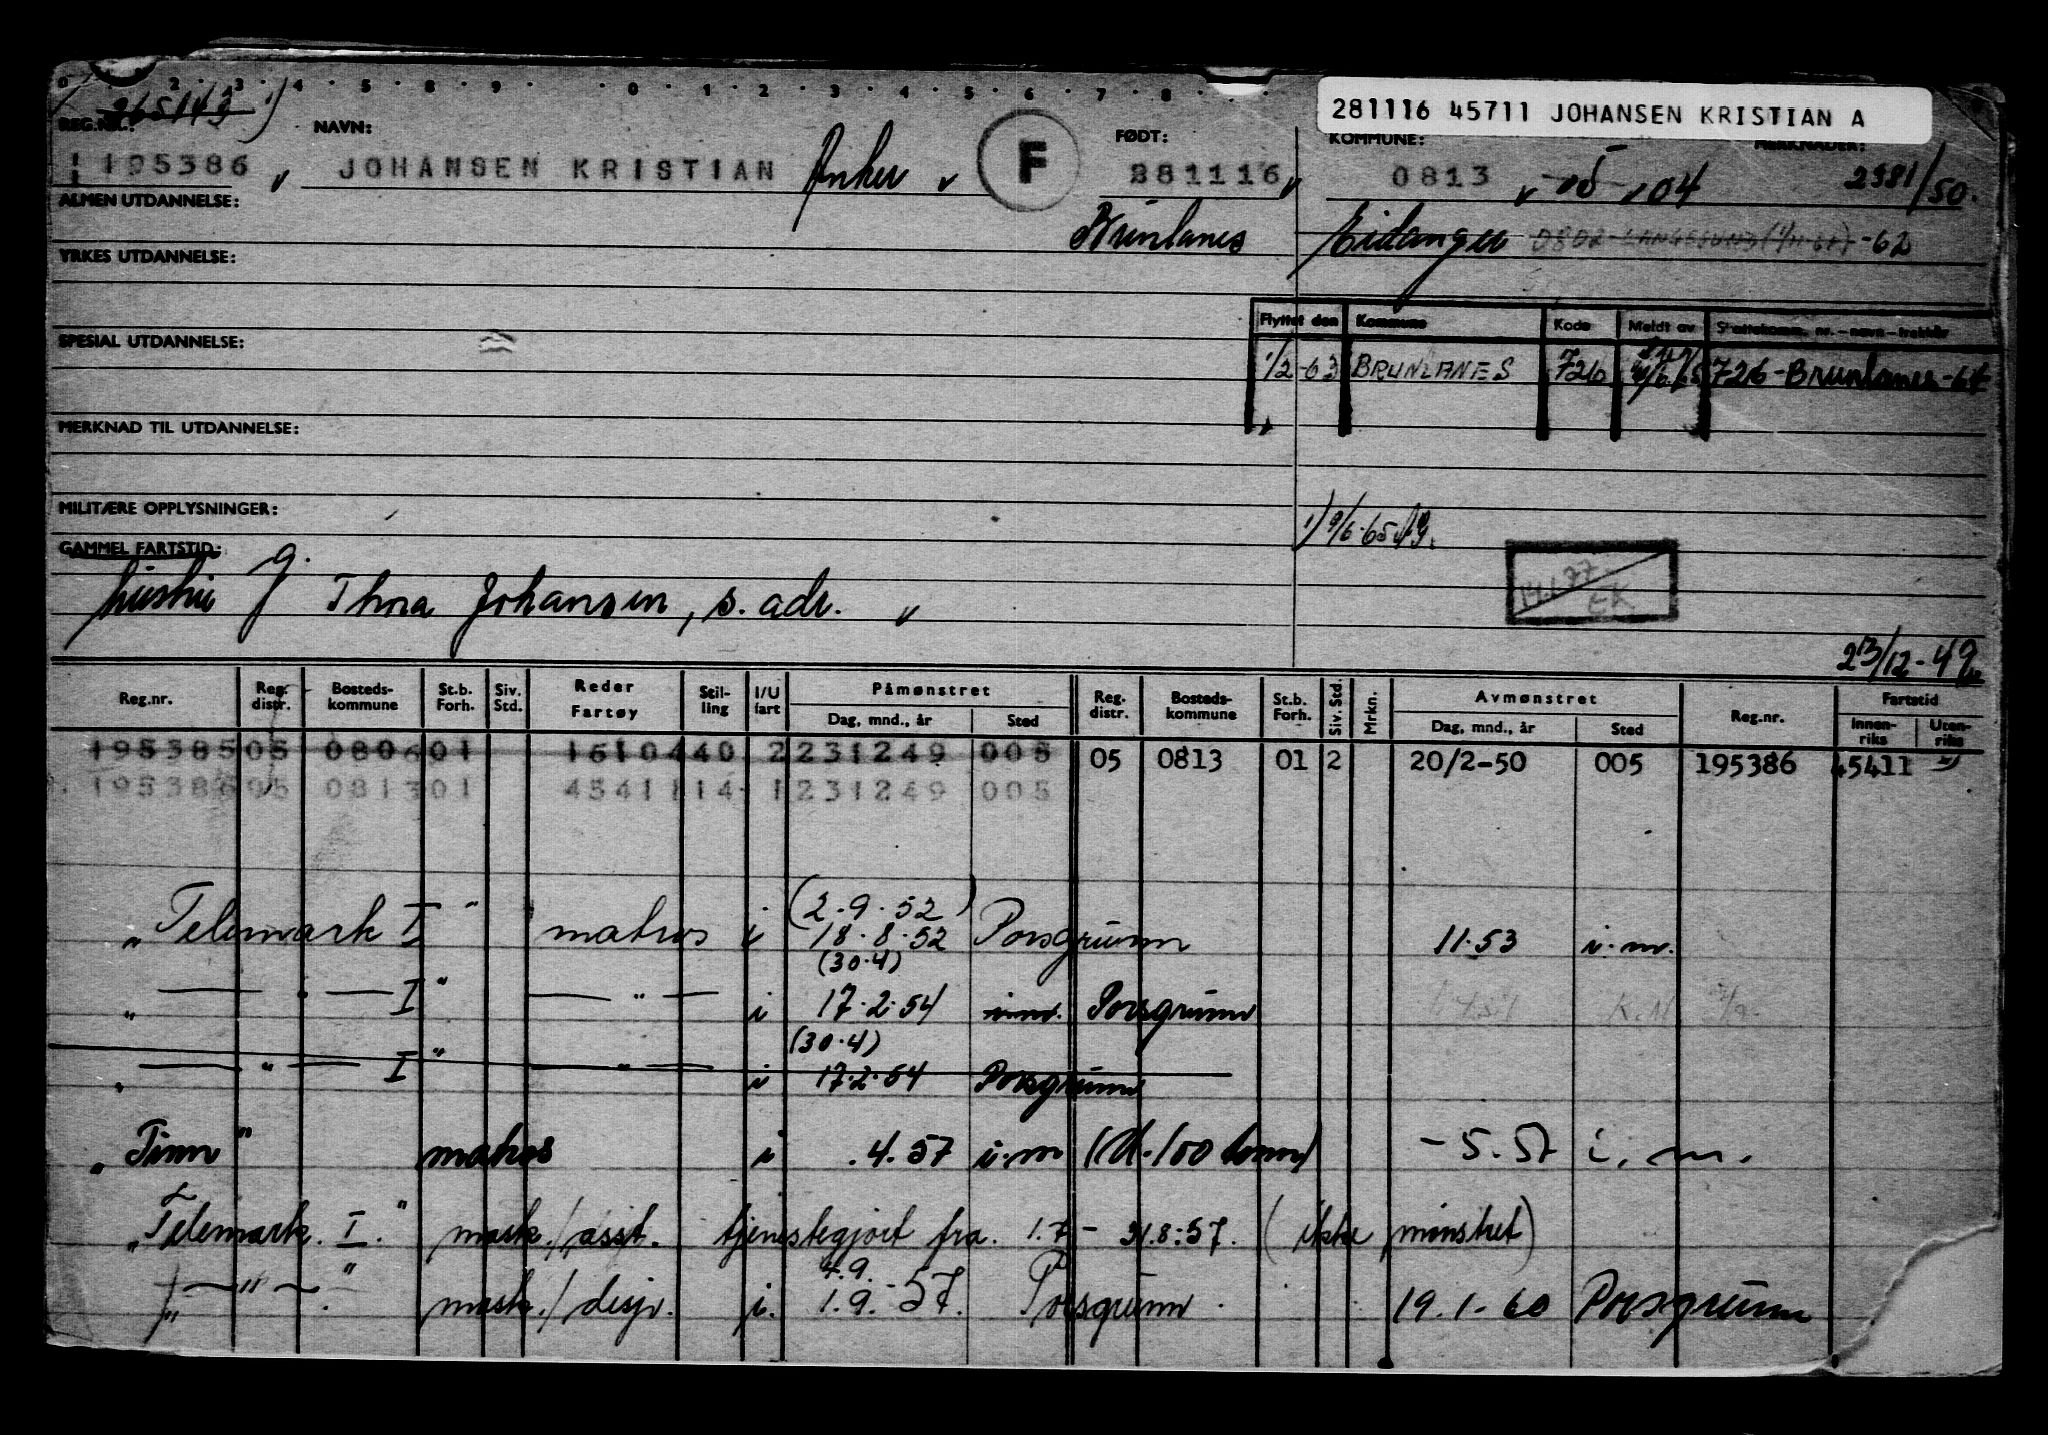 281116 45711 JOHANSEN KRISTIAN A
265143 1)
REG.NR.: NAVN: FØDT: KOMMUNE: MERKNADER:
195386 JOHANSEN KRISTIAN Anker F 281116 0813 05 04 2981/50.
ALMEN UTDANNELSE:
Brunlanes Eidanger 0802 LANGESUND -62
YRKES UTDANNELSE:
Flyttet den Kommune Kode Meldt av Skattekomm. nr. – navn – trekkår
SPESIAL UTDANNELSE:
1/2-63 BRUNLANES 726 726-Brunlanes-64
MERKNAD TIL UTDANNELSE:
MILITÆRE OPPLYSNINGER:
1) 9/6-65
GAMMEL FARTSTID:
hustru g. Thora Johansen, s. adr.
14.1.77 EK
23/12-49
Reg.nr. Reg. distr. Bosteds-kommune St.b. Forh. Siv. Std. Reder Fartøy Stil-ling I/U fart Påmønstret Dag, mnd., år Sted Reg. distr. Bosteds-kommune St.b. Forh. Siv. Std. Mrkn. Avmønstret Dag, mnd., år Sted Reg.nr. Fartstid Innen-riks Uten-riks
195385 05 0806 01 16104 40 2 231249 005 05 0813 01 2 20/2-50 005 195386 45411
195386 05 0813 01 45411 14 1 231249 005
(2.9.52)
„Telemark I" matros i 18.8.52 Porsgrunn 11.53 i.m.
(30.4)
„ — " — I" — " — i 17.2.54 Porsgrunn
(30.4)
„ — " — I" — " — i 17.2.54 Porsgrunn
„Tinn" matros i .4.57 i.m (U.100 tonn) -5.57 i.m.
„Telemark I." mask./asst. tjenestegjort fra 1.7 - 31.8.57. (ikke mønstret)
4.9.
„ — " — " mask./disp. i. 1.9.-57. Porsgrunn. 19.1-60 Porsgrunn